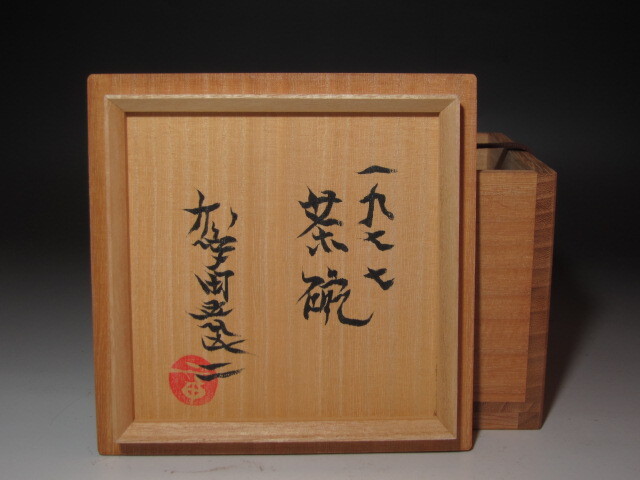 一九七七
茶碗
加守田章二